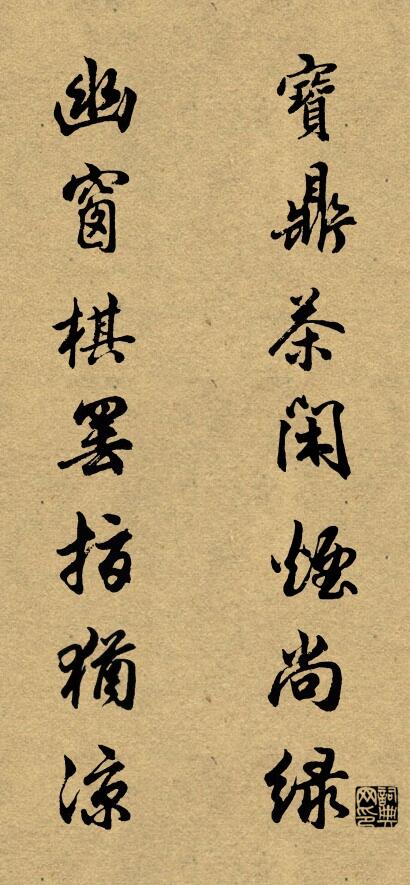 寶鼎茶閑煙尚緑
幽窗棋罢指猶涼
詞典网印